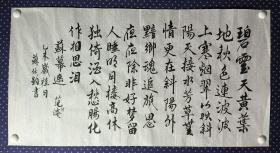 碧雲天黄葉
地秋色連波波
上寒烟翠山映斜
陽天接水芳草無
情更在斜陽外
黯鄉魂追旅思
夜夜除非好梦留
人睡明月楼高休
獨倚酒入愁腸化
作相思泪
蘇幕遮 范
乙未歲桂月
蘇 書